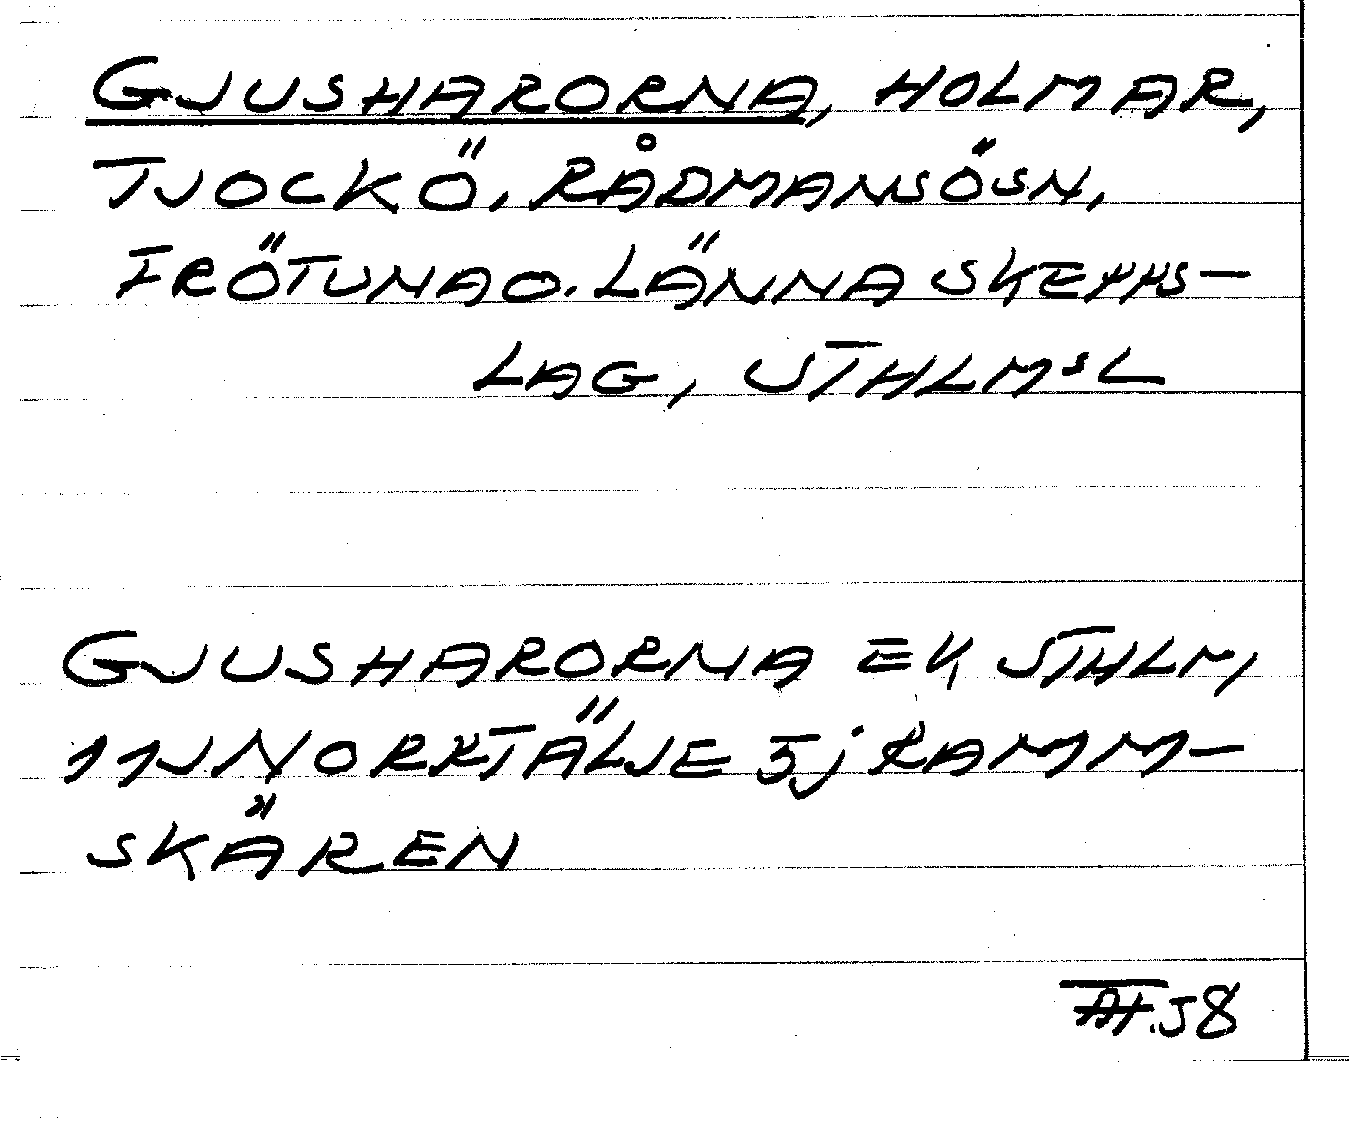 GJUSHARORNA, HOLMAR,
TJOCKÖ, RÅDMANSÖ SN,
FRÖTUNA O. LÄNNA SKEPPS-
LAG, STHLMS L
GJUSHARORNA EK, STHLM,
11J NORRTÄLJE 5j RAMM-
SKÄREN
58